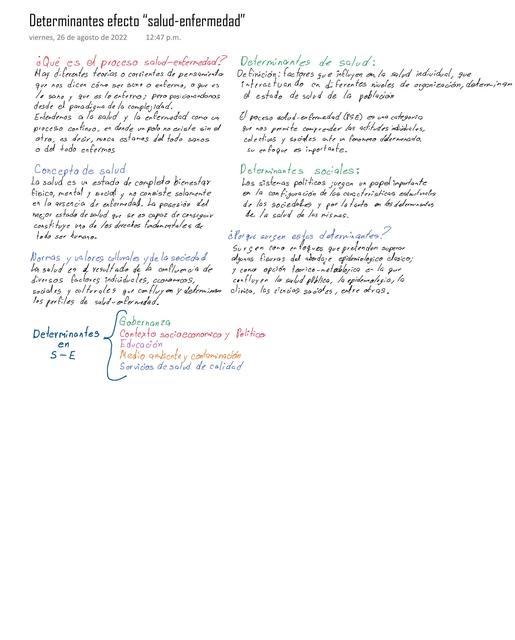 Determinantes efecto "salud-enfermedad"
viernes, 26 de agosto de 2022 12:47 p.m.
¿Qué es el proceso salud-enfermedad?
Hay diferentes teorías o corrientes de pensamiento
que nos dicen cómo ser sano o enfermo, o que es
lo sano y que es lo enfermo; pero posicionándonos
desde el paradigma de la complejidad.
Entendemos a la salud y la enfermedad como un
proceso continuo, en donde un polo no existe sin el
otro, es decir, nunca estamos del todo sanos
o del todo enfermos
Concepto de salud
La salud es un estado de completo bienestar
físico, mental y social y no consiste solamente
en la ausencia de enfermedad. La posesión del
mejor estado de salud que se es capaz de conseguir
constituye uno de los derechos fundamentales de
todo ser humano.
Normas y valores culturales y de la sociedad
La salud es el resultado de la confluencia de
diversos factores individuales, económicos,
sociales y culturales que confluyen y determinan
los perfiles de salud-enfermedad.
Determinantes de salud:
Definición: factores que influyen en la salud individual, que
interactuando en diferentes niveles de organización, determinan
el estado de salud de la población
El proceso salud-enfermedad (PSE) es una categoría
que nos permite comprender las actitudes individuales,
colectivas y sociales ante un fenómeno determinado,
su enfoque es importante.
Determinantes sociales:
Los sistemas políticos juegan un papel importante
en la configuración de las características estructurales
de las sociedades y por lo tanto en los determinantes
de la salud de las mismas.
¿Porque surgen estos determinantes?
Surgen como enfoques que pretenden superar
algunas figuras del abordaje epidemiológico clásico;
y como opción teórico-metodológica en la que
confluyen la salud pública, la epidemiología, la
clínica, las ciencias sociales, entre otras.
Determinantes
en
S-E
Gobernanza
Contexto socioeconomico y Político
Educación
Medio ambiente y contaminación
Servicios de salud de calidad